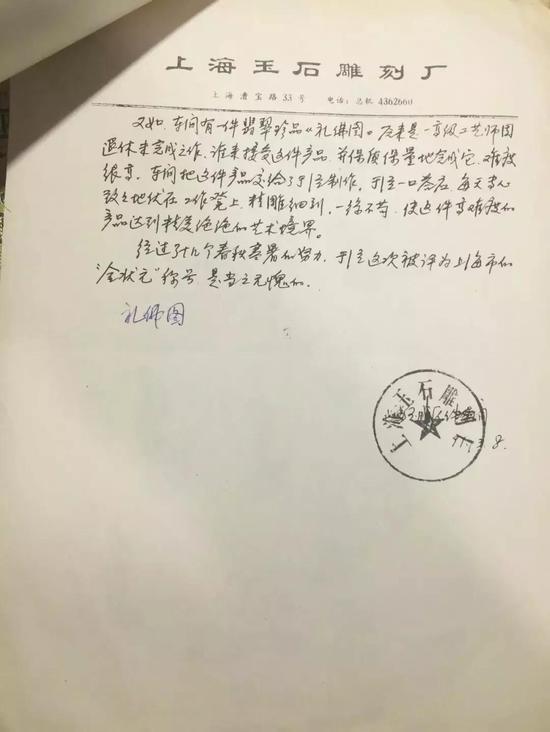 上海玉石雕刻厂
上海漕宝路33号 电话：总机 4362660
又如，车间有一件翡翠珍品《礼佛图》原来是一高级工艺师因
退休未完成之作，谁来接受这件产品，并保质保量地完成它，难度
很高，车间把这件产品交给了于泾制作，于泾一口答应，每天专心
致之地伏在工作凳上，精雕细刻，一丝不苟，使这件高难度的
产品达到精美绝伦的艺术境界。
经过了十几个春秋寒暑的努力，于泾这次被评为上海市的
"全状元"称号，是当之无愧的。
礼佛图
上海玉石雕刻厂
8.